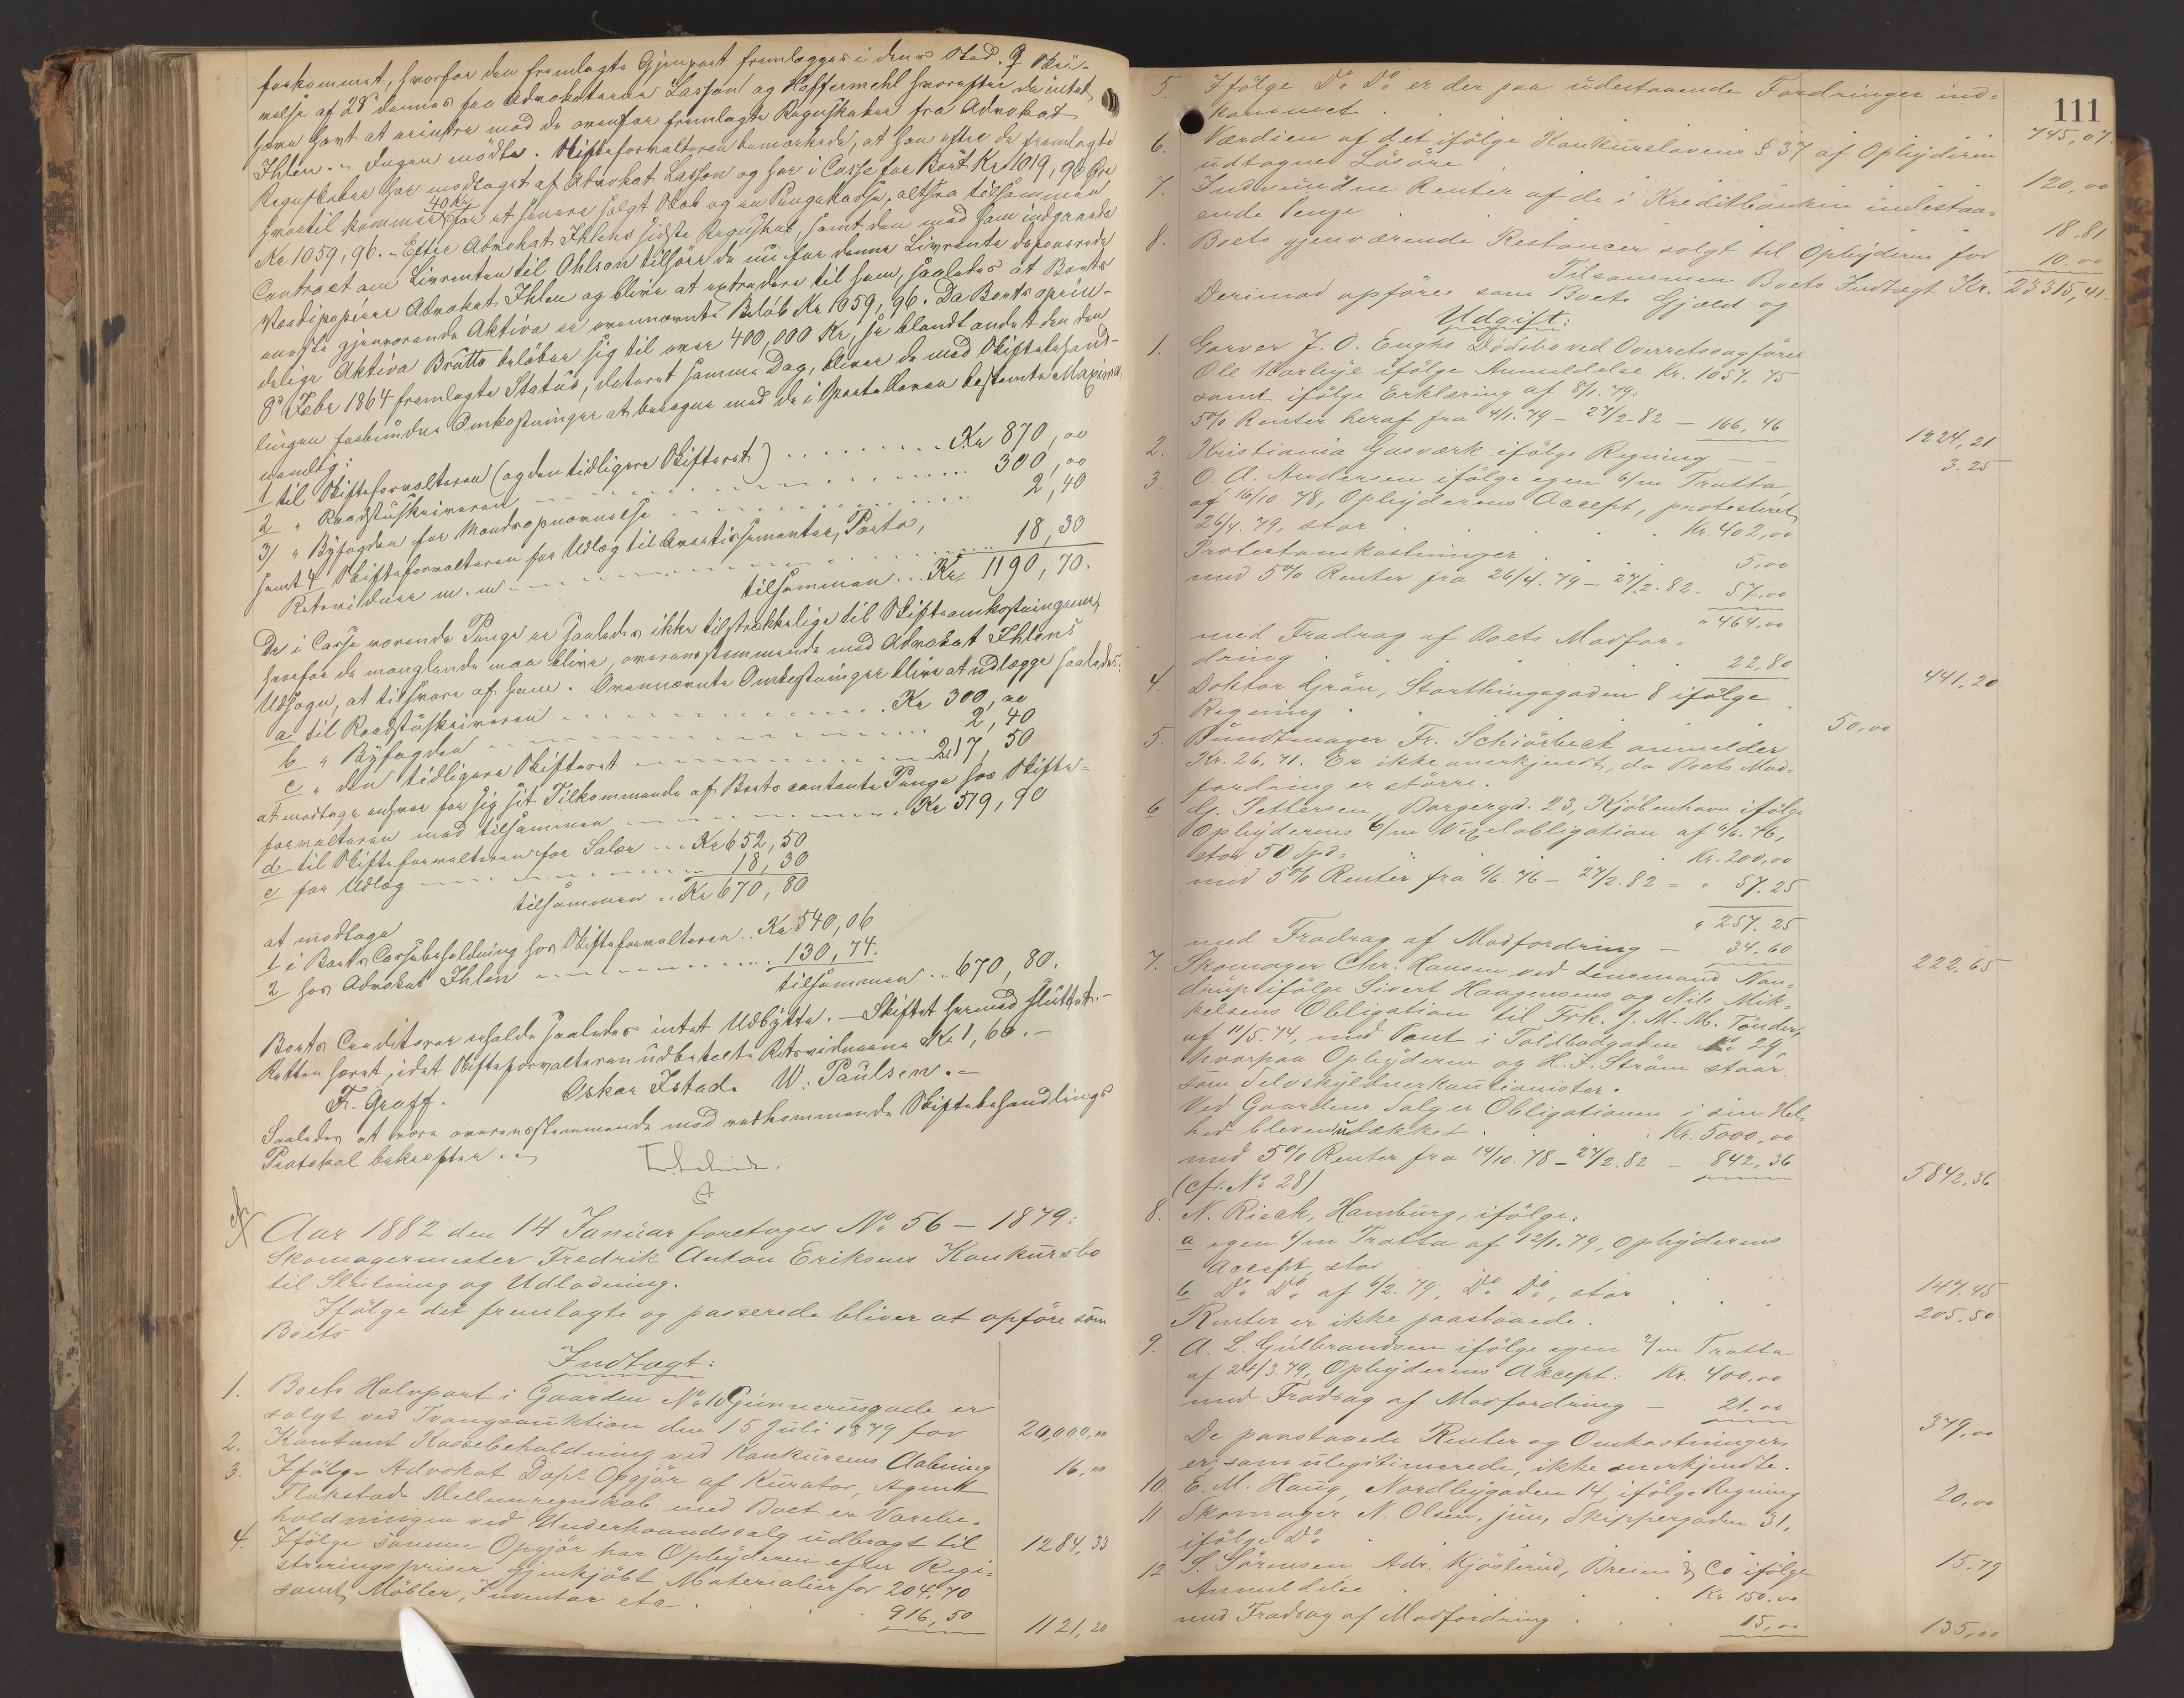 forkommet, hvorfor den fremlagte Gjenpart fremlægges i dens Sted. 9 Skri-
velse af 28 dennes fra Advokaterne Lasson og Heffermehl hvorefter de intet
have havt at erindre mod de ovenfor fremlagte Regnskaber fra Advokat
Ihlen. – Ingen mödte. Skifteforvalteren bemærkede, at han efter de fremlagte
Regnskaber har modtaget af Advokat Lasson og har i Casse for Boet Kr 1019,96 Øre
hvortil kommer 40 Kr for et senere solgt Skab og en Pengekasse, altsaa tilsammen
Kr 1059,96. – Efter Advokat Ihlens sidste Regnskab, samt den med ham indgaaede
Contract om Livrenten til Ohlson tilhöre de nu for denne Livrente deponerede
Værdipapirer Advokat Ihlen og blive at extradere til ham, saaledes at Boets
eneste gjenværende Aktiva er ovennævnte Belöb Kr 1059,96. Da Boets oprin-
delige Aktiva Brutto belöber sig til over 400,000 Kr, se blandt andet den den
8 Febr 1864 fremlagte Status, dateret samme Dag, bliver de med Skiftebehand-
lingen forbundne Omkostninger at beregne med de i Sportelloven bestemte Maxima,
nemlig:
1 til Skifteforvalteren (og den tidligere Skifteret) Kr 870,00
2 " Raadstuskriveren 300,00
3) " Byfogden for Mandsopnævnelse 2,40
samt 4 Skifteforvalteren for Udlæg til Avertissementer, Porto,
Retsvidner m. m. 18,30
tilsammen .. Kr 1190,70.
De i Casse værende Penge er saaledes ikke tilstrækkelige til Skifteomkostningerne,
hvorfor de manglende maa blive, overensstemmende med Advokat Ihlens
Udsagn, at tilsvare af ham. Ovennævnte Omkostninger blive at udlægge saaledes:
a til Raadstuskriveren Kr 300,00
b " Byfogden 2,40
c " den tidligere Skifteret 217,50
at modtage enhver for sig sit Tilkommende af Boets contante Penge hos Skifte-
forvalteren med tilsammen Kr 519,90
d til Skifteforvalteren for Salær Kr 652,50
e for Udlæg 18,30
tilsammen .. Kr 670,80
at modtage
1 i Boets Cassebeholdning hos Skifteforvalteren .. Kr 540,06
2 hos Advokat Ihlen 130,74.
tilsammen .. 670,80.
Boets Creditorer erholde saaledes intet Udbytte. – Skiftet hermed sluttet. –
Retten hævet, idet Skifteforvalteren udbetalte Retsvidnerne Kr 1,60. –
Fr. Graff. Oskar Istad. W. Paulsen. –
Saaledes at være overensstemmende med vedkommende Skiftebehandlings
Protokol bekræfter
Aar 1882 den 14 Januar foretoges No 56 – 1879:
Skomagermester Fredrik Anton Eriksens Konkursbo
til Slutning og Udlodning.
Ifölge det fremlagte og passerede bliver at opföre som
Boets
Indtægt:
1. Boets Halvpart i Gaarden No 10 Gunnerusgade er
solgt ved Tvangsauktion den 15 Juli 1879 for 20,000,00
2. Kontant Kassebeholdning ved Konkursens Aabning 16,00
3. Ifölge Advokat Dops Opgjör af Kurator, Agent
Flakstads Mellemregnskab med Boet er Varebe-
holdningen ved Underhaandssalg udbragt til 1284,33
4. Ifölge samme Opgjör har Opbyderen efter Regi-
streringspriser gjenkjöbt Materialier for 204,70
samt Möbler, Inventar etc. 916,50 1121,20
111
5. Ifölge Do Do er der paa udestaaende Fordringer ind-
kommet 745,07.
6. Værdien af det ifölge Konkurslovens § 37 af Opbyderen
udtagne Lösöre 120,00
7. Indvundne Renter af de i Kreditbanken indestaa-
ende Penge 18.81
8. Boets gjenværende Restancer solgt til Opbyderen for 10.00
Tilsammen Boets Indtægt Kr. 23315,41.
Derimod opföres som Boets Gjæld og
Udgift:
1. Garver J. O. Enghs Dödsbo ved Overretssagförer
Ole Narbye ifölge Anmeldelse Kr. 1057,75
samt ifölge Erklæring af 8/1. 79.
5% Renter heraf fra 4/1. 79 – 27/2. 82 – 166,46 1224,21
2. Kristiania Gasværk ifölge Regning 3.25
3. O. A. Andersen ifölge egen 6/m Tratta
af 16/10. 78, Opbyderens Accept, protesteret
26/4. 79, stor Kr. 402,00
Protestomkostninger 5,00
med 5% Renter fra 26/4. 79 – 27/2. 82. 57,00
" 464,00
med Fradrag af Boets Modfor-
dring 22,80 441,20
4. Doktor Grön, Storthingsgaden 8 ifölge
Regning 50,00
5. Bundtmager Fr. Schiörbeck anmelder
Kr. 26,71. Er ikke anerkjendt, da Boets Mod-
fordring er större.
6 G. Pettersen, Borgergd. 23, Kjöbenhavn ifölge
Opbyderens 6/m Vexelobligation af 6/6. 76,
stor 50 Spd = Kr. 200,00
med 5% Renter fra 6/6. 76 – 27/2. 82 = " 57.25
" 257.25
med Fradrag af Modfordring – 34.60 222,65
7. Skomager Chr. Hansen ved Lensmand Nan-
drup ifölge Sivert Haagensens og Nils Mik-
kelsens Obligation til Frk. J. M. M. Tönder,
af 11/5. 74, med Pant i Toldbodgaden No 29,
hvorpaa Opbyderen og H. J. Ström staar
som Selvskyldnerkautionister.
Ved Gaardens Salg er Obligationen i sin Hel-
hed bleven udækket Kr. 5000,00
med 5% Renter fra 14/10. 78 – 27/2. 82 – 842,36 5842,36
(cfr. No 28)
8. N. Rieck, Hamburg, ifölge.
a egen 4/m Tratta af 12/1. 79, Opbyderens
Accept, stor 147.45
b Do Do af 6/2. 79, Do Do, stor 205.50
Renter er ikke paastaaede.
9. A. L. Gulbrandsen ifölge egen 3/m Tratta
af 24/3. 79, Opbyderens Akcept: Kr. 400,00
med Fradrag af Modfordring – 21.00 379,00
De paastaaede Renter og Omkostninger,
er, som ulegitimerede, ikke anerkjendte.
10. E. M. Haug, Nordbygaden 14, ifölge Regning 20,00
11 Skomager N. Olsen, jun, Skippergaden 31,
ifölge Do 15.79
12 S. Sörensen Adr. Kjösterud, Dreien & Co ifölge
Anmeldelse Kr. 150,00
med Fradrag af Modfordring 15,00 135,00